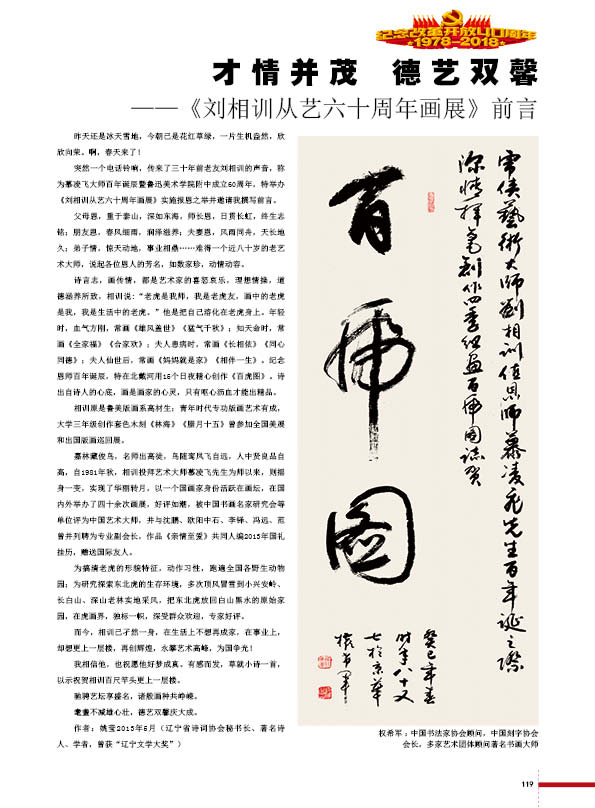 纪念改革开放40周年
★1978-2018★
才情并茂 德艺双馨
——《刘相训从艺六十周年画展》前言
昨天还是冰天雪地，今朝已是花红草绿，一片生机盎然，欣
欣向荣。啊，春天来了！
突然一个电话铃响，传来了三十年前老友刘相训的声音，称
为慕凌飞大师百年诞辰暨鲁迅美术学院附中成立60周年，特举办
《刘相训从艺六十周年画展》实施报恩之举并邀请我撰写前言。
父母恩，重于泰山，深如东海，师长恩，日贯长虹，终生志
铭；朋友恩，春风细雨，润泽滋养；夫妻恩，风雨同舟，天长地
久；弟子情，惊天动地，事业相鼎……难得一个近八十岁的老艺
术大师，说起各位恩人的芳名，如数家珍，动情动容。
诗言志，画传情，都是艺术家的喜怒哀乐，理想情操，道
德涵养所致，相训说：“老虎是我师，我是老虎友，画中的老虎
是我，我是生活中的老虎。”他是把自己溶化在老虎身上。年轻
时，血气方刚，常画《雄风盖世》《猛气千秋》；知天命时，常
画《全家福》《合家欢》；夫人患病时，常画《长相依》《同心
同德》；夫人仙世后，常画《妈妈就是家》《相伴一生》。纪念
恩师百年诞辰，特在北戴河用15个日夜精心创作《百虎图》。诗
出自诗人的心底，画是画家的心灵，只有呕心沥血才能出精品。
相训原是鲁美版画系高材生；青年时代专功版画艺术有成，
大学三年级创作套色木刻《林海》《腊月十五》曾参加全国美展
和出国版画巡回展。
嘉林藏俊鸟，名师出高徒，鸟随鸾凤飞自远，人中贤良品自
高，自1981年秋，相训投拜艺术大师慕凌飞先生为师以来，则摇
身一变，实现了华丽转月，以一个国画家身份活跃在画坛，在国
内外举办了四十余次画展，好评如潮，被中国书画名家研究会等
单位评为中国艺术大师，并与沈鹏、欧阳中石、李铎、冯远、范
曾并列聘为专业副会长，作品《亲情至爱》共同入编2013年国礼
挂历，赠送国际友人。
为搞清老虎的形貌特征，动作习性，跑遍全国各野生动物
园；为研究探索东北虎的生存环境，多次顶风冒雪到小兴安岭、
长白山、深山老林实地采风，把东北虎放回白山黑水的原始家
园，在虎画界，独标一帜，深受群众欢迎，专家好评。
而今，相训已孑然一身，在生活上不想再成家，在事业上，
却想更上一层楼，再创辉煌，永攀艺术高峰，为国争光！
我相信他，也祝愿他好梦成真。有感而发，草就小诗一首，
以示祝贺相训百尺竿头更上一层楼。
驰骋艺坛享盛名，诸般画种共峥嵘。
耄耋不减雄心壮，德艺双馨庆大成。
作者：姚莹2013年5月（辽宁省诗词协会秘书长、著名诗
人、学者，曾获“辽宁文学大奖”）
百虎图
深情挥毫创作四季组画百虎图志贺
癸巳年春
时年八十又
七于京华
权希军
权希军：中国书法家协会顾问，中国刻字协会
会长，多家艺术团体顾问著名书画大师
119